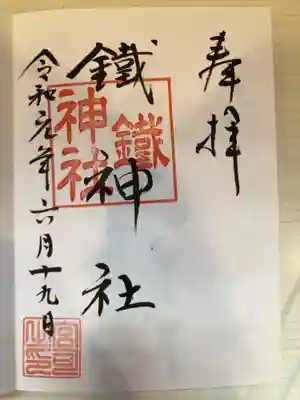 奉拝
鐵神社
鐵神社
令和元年六月十九日